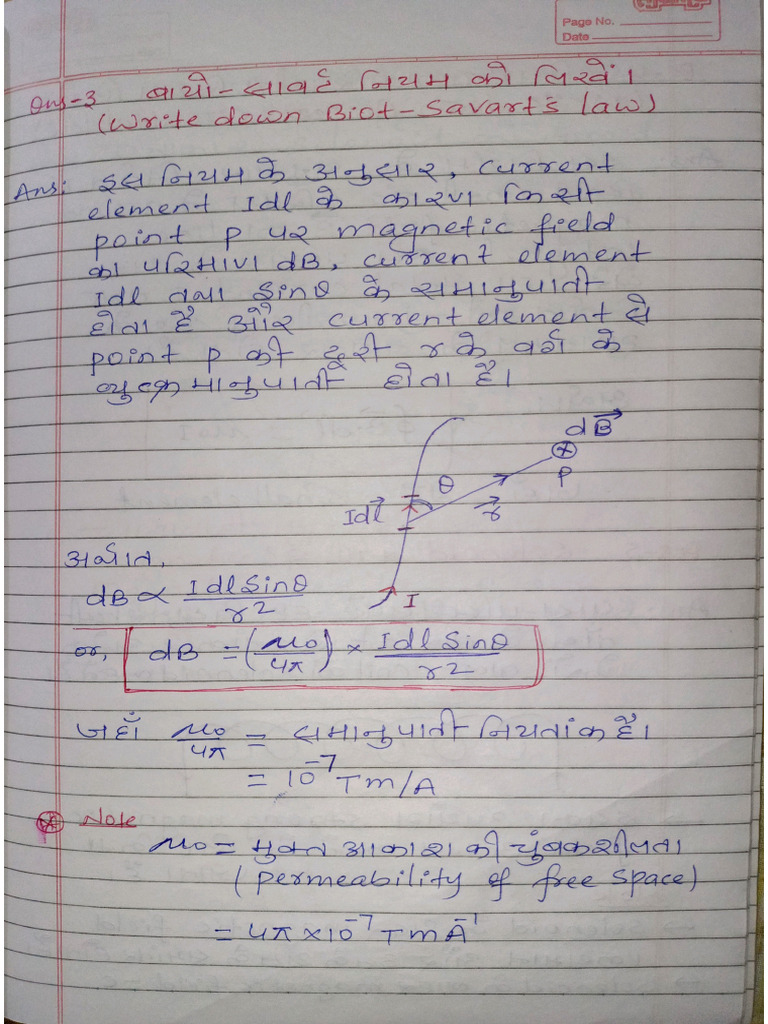 Page No.
Date
Ans-3 बायो-सावर्ट नियम को लिखें।
(Write down Biot-Savart's law)
Ans: इस नियम के अनुसार, current
element Idl के कारण किसी
point P पर magnetic field
का परिमाण dB, current element
Idl तथा Sinθ के समानुपाती
होता है और current element से
point P की दूरी r के वर्ग के
व्युत्क्रमानुपाती होता है।
dB⃗
⊗
P
θ
Idl⃗
r⃗
I
अर्थात,
dB ∝ IdlSinθ/r²
or, dB = (μ₀/4π) × IdlSinθ/r²
जहाँ μ₀/4π = समानुपाती नियतांक है।
= 10⁻⁷ Tm/A
⊗ Note
μ₀ = मुक्त आकाश की चुंबकशीलता
(Permeability of free space)
= 4π×10⁻⁷ TmA⁻¹